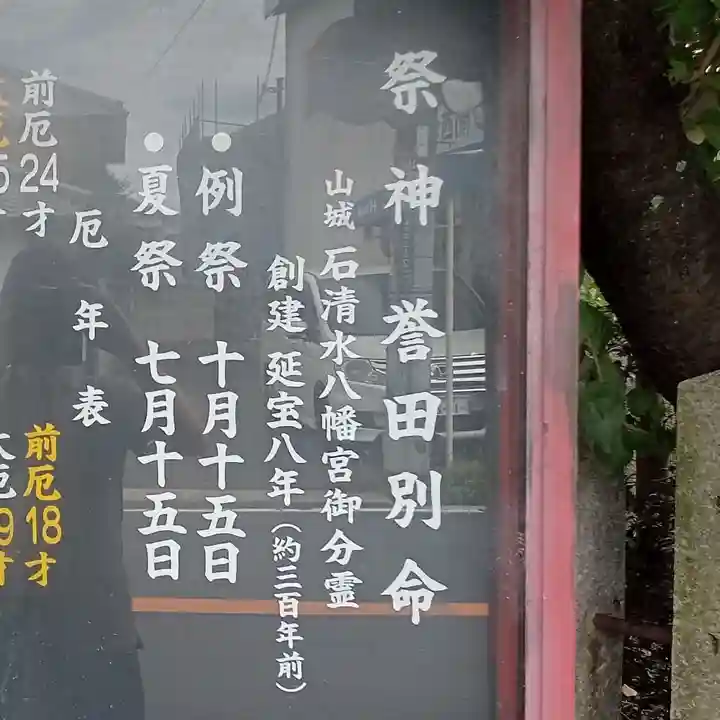 祭神 誉田別命
山城 石清水八幡宮御分霊
創建 延宝八年(約三百年前)
●例祭 十月十五日
●夏祭 七月十五日
厄年表
前厄24才
前厄18才